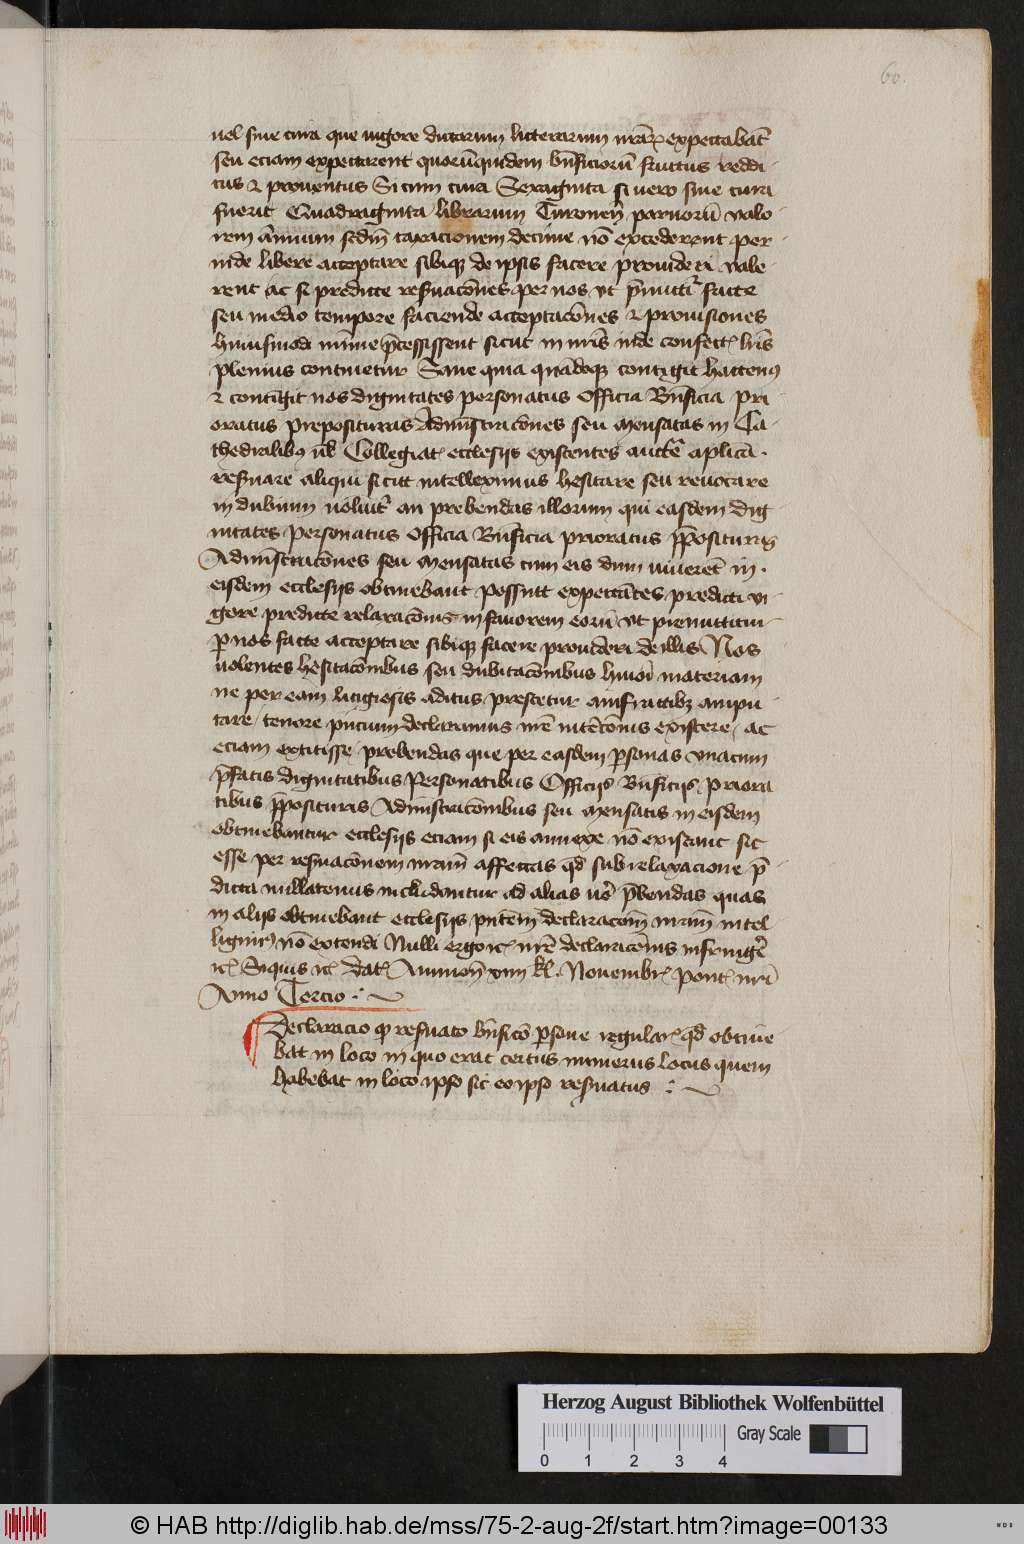 60.
uel siue cura que uigore dictarum litterarum nrãrꝝ expectabãt
seu eciam expectarent quorũquidem bñficiorũ fructus reddi
tus ⁊ prouentus Si cum cura Sexaginta si uero sine cura
fuerit Quadraginta librarum Turoneñ paruorũ valo
rem ãnuum scdm̃ taxacionem decime nõ excederent per
inde libere acceptare sibiqꝫ de ipsis facere prouideri vale
rent ac si predicte resuacõnes per nos vt p̃mittr̃ facte
seu medio tempore faciende acceptacões ⁊ prouisiones
huiusmodi mĩme p̃cessissent sicut in nr̃is inde confectꝭ lrĩs
plenius continetur Sane quia quãdoqꝫ contigit hactenꝰ
⁊ contĩgit nos dignitates personatus officia Bñficia pri
oratus prepositura​s Adm̃istracões seu mensatas in Ca
thedralibꝰ ul̃ Collegiatꝭ ecclesijs existentes auctẽ aplicã
resuare aliqui sicut intelleximus hesitare seu reuocare
in dubium uoluũt an prebendas illorum qui easdem dig
nitates personatus officia Bñficia prioratus p̃posituras
Adm̃istracões seu mensatas cum eis dum uiueret in
eisdem ecclesijs obtinebant possint expectãtes predicti vi
gore predicte relaxacõnis in fauorem eorũ vt premittitur
ꝑ nos facte acceptare sibiqꝫ facere prouideri de illis Nos
uolentes hesitacõnibus seu dubitacõnibus hmõi materiam
ne per eam litigiosis aditus prestetur amfractibꝫ ampu
tare tenore pñcium declaramus nrẽ intẽcõnis existere ac
eciam extitisse prebendas que per easdem ꝑsonas vnacum
p̃fatis dignitatibus personatibus officijs Bñficijs priora
tibus p̃posituris Adm̃istracõnibus seu mensatis in eisdem
obtinebantur ecclesijs eciam si eis annexe nõ existant sic
esse per resuacõnem nrãm affectas qđ sub relaxacione p̃
dicta nullatenus includantur ad alias uõ p̃bendas quas
in alijs obtinebant ecclesijs pñtem declaracõm nrãm intel
ligimꝰ nõ extendi Nulli ergo ꝛcꝭ nrẽ declaracõnis infringẽ
ꝛcꝭ Siquis ꝛcꝭ Datꝭ Auinoñ xiiij kl̃. Nouembrꝭ pontꝭ nrĩ
Anno Tercio
Declaracio ꝙ resuato bñficõ ꝑsone regularꝭ qđ obtine
bat in loco in quo erat certus numerus locus quem
habebat in loco ipso sit eo ipso resuatus
Herzog August Bibliothek Wolfenbüttel
Gray Scale
0 1 2 3 4
© HAB http://diglib.hab.de/mss/75-2-aug-2f/start.htm?image=00133